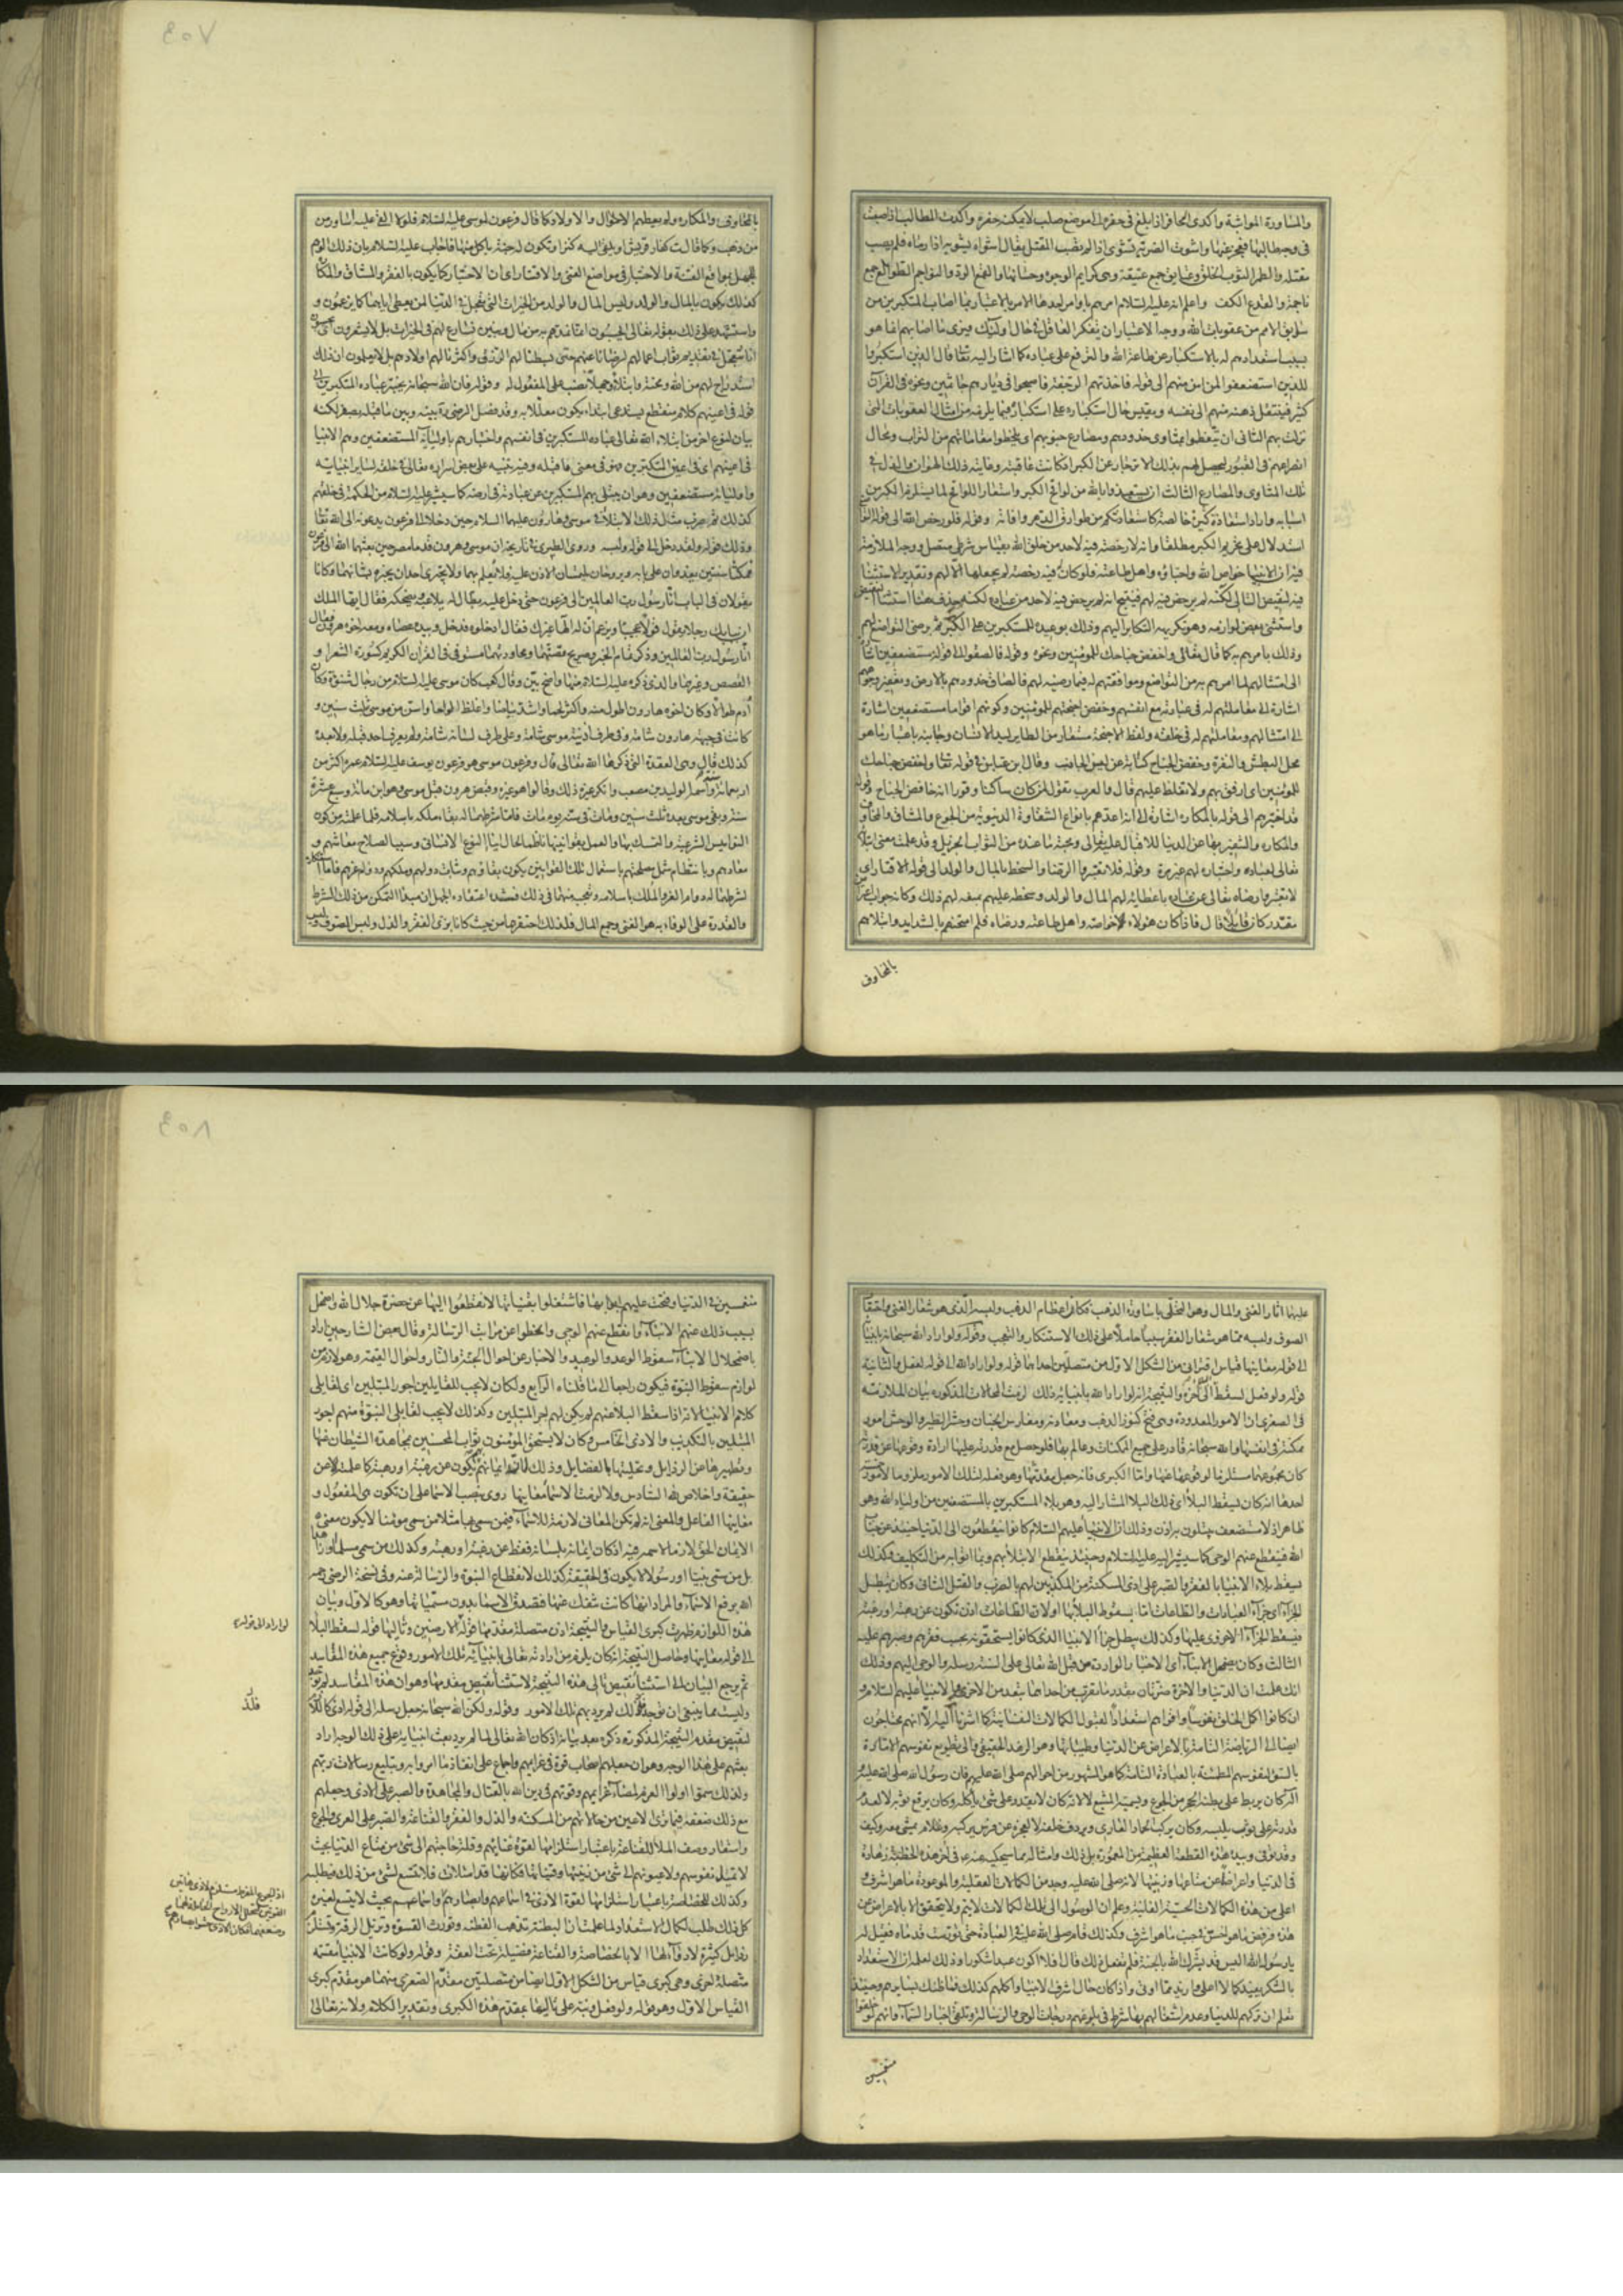 والمساورة المواثبة واكدى الحافر اذا بلغ فى حفره الى موضع صلب لايمكنه حفره واكدت المطالب اذا صعبت
فى وجه طالبها فعجز عنها واشوت الضربة تشوى اذا لم تصب المقتل يقال اشواه يشويه اذا رماه فلم يصب
مقتله والطمر الثوب الخلق وعتايق جمع عتيقة وهى كرايم الوجوه وحسانها والنواجم الطوالع جمع
ناجمة والقدع الكف واعلم انه عليه السلام امرهم باوامر احدها الامر بالاعتبار بما اصاب المتكبرين من
سابق الامم من عقوبات الله ووجه الاعتبار ان يتفكر العاقل فى حال اولئك فيرى ما اصابهم انما هو
بسبب استعدادهم له بالاستكبار عن طاعة الله والترفع على عباده كما اشار اليه تعالى قال الذين استكبروا
للذين استضعفوا لمن امن منهم الى قوله فاخذتهم الرجفة فاصبحوا فى ديارهم جاثمين ونحوه فى القرآن
كثير فينتقل ذهنه منهم الى نفسه ويقيس حال استكباره على استكبارهم فيما يلزمه من امثال العقوبات التى
نزلت بهم الثانى ان يتعظوا بمثاوى خدودهم ومصارع جنوبهم اى يلحظوا مقاماتهم من التراب ومحال
انصراعهم فى القبور ليحصل لهم بذلك الانزجار عن الكبر اذ كانت عاقبته وغايته ذلك الهوان والذل فى
تلك المثاوى والمصارع الثالث ان يستعيذوا بالله من لواقح الكبر واستعار اللواقح لما يستلزم الكبر من
اسبابه واراد استعاذة كثيرة خالصة كاستعاذتكم من طوارق الدهر وافاته وقوله فلو رخص الله الى قوله
استدلال على تحريم الكبر مطلقا وانه لا رخصة فيه لاحد من خلق الله بقياس شرطى متصل ووجه الملازمة
فيه ان الانبياء خواص الله واحباؤه واهل طاعته فلو كان فيه رخصة لم يجعلها الا لهم وتقدير الاستثناء
فيه لنقيض التالى لكنه لم يرخص فيه لهم فينتج انه لم يرخص فيه لاحد من عباده لكنه حذف هنا استثناء
واستثنى بعض لوازمه وهو تكريهه التكابر اليهم وذلك بوعيده للمتكبرين على الكبر ثم رضى التواضع لهم
وذلك بامرهم به كما قال تعالى واخفض جناحك للمؤمنين ونحوه وقوله فالصقوا الى قوله مستضعفين
الى امتثالهم لما امرهم به من التواضع وموافقتهم له فيما رضيه لهم فالصاق خدودهم بالارض وتعفير وجوههم
اشارة الى معاملتهم له فى عبادته مع انفسهم وخفض اجنحتهم للمؤمنين وكونهم اقواما مستضعفين اشارة
الى امتثالهم ومعاملتهم له فى خلقه ولفظ الاجنحة مستعار من الطاير ليد الانسان وجانبه باعتبار ما هو
محل البطش والنفرة وخفض الجناح كناية عن لين الجانب وقال ابن عباس فى قوله تعالى واخفض جناحك
للمؤمنين اى ارفق بهم ولا تغلظ عليهم قال والعرب تقول لمن كان ساكنا وقورا انه خافض الجناح وقوله
قد اختبرهم الى قوله بالمكاره اشارة الى انه اعدهم بانواع الشقاوة الدنيوية من الجوع والمشاق والمخاوف
والمكاره والتنفير بها عن الدنيا للاقبال عليه تعالى ومحبة ما عنده من الثواب الجزيل وقد علمت معنى ابتلاء
تعالى لعباده واختباره لهم غير مرة وقوله فلا تعتبروا الرضا والسخط بالمال والولد الى قوله الاقتار اى
لاتعتبروا رضاه تعالى عن عباده باعطائه لهم المال والولد وسخطه عليهم بمنعه لهم ذلك وكانه جواب
مقدر كان قايلا قال فاذا كان هؤلاء خواصه واهل طاعته ورضاه فلم امتحنهم بالشدايد وابتلاهم
بالمخاوف
بالمخاوف والمكاره ولم يعطهم الاموال والاولاد كما قال فرعون لموسى عليه السلام فلولا القى عليه اساور من
من ذهب وكما قالت كفار قريش او يلقى اليه كنز او تكون له جنة ياكل منها فاجاب عليه السلام بان ذلك الوهم
للجهل بمواقع الفتنة والاختبار فى مواضع الغنى والاقتار اى ان الاختبار كما يكون بالفقر والمشاق والمكاره
كذلك يكون بالمال والولد وليس المال والولد من الخيرات التى تعجل فى الدنيا لمن يعطى اياهما كما يزعمون و
واستشهد على ذلك بقوله تعالى ايحسبون انما نمدهم به من مال وبنين نسارع لهم فى الخيرات بل لا يشعرون اى يحسبون
انا نتعجل فى تقديم ثواب اعمالهم لرضانا عنهم حتى بسطنا لهم الرزق واكثرنا لهم اولادهم بل لا يعلمون ان ذلك
استدراج لهم من الله ومحنة وابتلاء وجهلا نصب على المفعول له وقوله فان الله سبحانه يختبر عباده المتكبرين الى
قوله فى اعينهم كلام منقطع يستدعى ابتداء يكون معللا به وقد فصل الرضى ره بينه وبين ما قبله بصفر لكنه
بيان لنوع اخر من ابتلاء الله تعالى عباده المستكبرين فى انفسهم واختبارهم باوليائه المستضعفين وهم الانبياء
فى اعينهم اى فى اعين المتكبرين وهو فى معنى ما قبله وفيه تنبيه على بعض اسراره تعالى فى خلقه لساير انبيائه
واوليائه مستضعفين وهو ان يبتلى بهم المستكبرين عن عبادته فى ارضه كما سيشير عليه السلام من الحكمة فى خلقهم
كذلك ثم ضرب مثال ذلك الابتلاء فى موسى وهارون عليهما السلام حين دخلا الى فرعون يدعونه الى الله تعالى
وذلك قوله ولقد دخل الى قوله ولبسه وروى الطبرى فى تاريخه ان موسى وهرون قدما مصر حين بعثهما الله الى فرعون
فمكثا سنتين يغدوان على بابه ويروحان يلتمسان الاذن عليه فلا يعلم بهما ولا يجترى احدان يخبره بشانهما وكانا
يقولان فى الباب انا رسول رب العالمين الى فرعون حتى دخل عليه بطال له يلاعبه ويضحكه فقال ايها الملك
ان ببابك رجلا يقول قولا عجيبا ويزعم ان له الها غيرك فقال ادخلوه فدخل وبيده عصاه ومعه اخوه هرون فقال
انا رسول رب العالمين وذكر تمام الخبر وصريح قصتهما ومحاورتهما مستوفى فى القرآن الكريم كسورة الشعراء و
القصص وغيرهما والذى ذكره عليه السلام منها واضح بين وقال كعب كان موسى عليه السلام من رجال شنؤة وكان
آدم طوالا وكان اخوه هارون اطول منه واكثر لحما واشد بياضا واغلظ الواحا واسن من موسى ثلث سنين و
كانت فى جبهة هارون شامة وفى طرف ارنبة موسى شامة وعلى طرف لسانه شامة ولم يعرف احد قبله ولا بعده
كذلك قال وهى العقدة التى ذكرها الله تعالى قال وفرعون موسى هو فرعون يوسف عليه السلام عمره اكثر من
اربعمائة سنة واسمه الوليد بن مصعب وانكر غيره ذلك وقالوا هو غيره وقبض هرون قبل موسى وهو ابن مائة وسبع عشرة
سنة وبقى موسى بعده ثلث سنين ومات فى سنه يوم مات فاما شرطهما له بقاء ملكه باسلامه فلما علمته من كون
النواميس الشرعية والتمسك بها والعمل بقوانينها ناظما لحال النوع الانسانى وسببا لصلاح معاشهم و
معادهم وبانتظام شمل مصلحتهم باستعمال تلك القوانين يكون بقاؤهم وثبات دولهم وملكهم ودوام عزهم فاما انكاره
لشرطهما له دوام العز والملك باسلامه وتعجب منهما فى ذلك فمستنده اعتقاده الجهل ان مبدا التمكن من ذلك الشرط
والقدرة على الوفاء به هو الغنى وجمع المال فلذلك احتقرهما من حيث كانا بزى الفقر والذل ولبس الصوف وليس
عليهما آثار الغنى والمال وهو التحلى باساورة الذهب فكان اعظام الذهب ولبسه الذى هو شعار الغنى واحتقار
الصوف ولبسه مما هو شعار الفقر سببا حاملا على ذلك الاستنكار والتعجب وقوله ولو اراد الله سبحانه بانبيائه
الى قوله معانيها قياس اقترانى من الشكل الاول من متصلين احداهما قوله ولو اراد الله الى قوله لفعل والثانية
قوله ولو فعل لسقط الى آخره والنتيجة انه لو اراد الله بانبيائه ذلك لزمت المحالات المذكورة بيان الملازمة
فى الصغرى ان الامور المعدودة وهى فتح كنوز الذهب ومعادنه ومغارس الجنان وحشر الطير والوحش امور
ممكنة فى انفسها والله سبحانه قادر على جميع الممكنات وعالم بها فلو حصل مع قدرته عليها ارادة وقوعها عن قدرته
احدها انه كان يسقط البلاء اى ذلك البلاء المشار اليه وهو بلاء المستكبرين بالمستضعفين من اولياء الله وهو
ظاهر اذ لا مستضعف يبتلون به اذن وذلك ان الانبياء عليهم السلام كانوا ينقطعون الى الدنيا حينئذ عن جناب
الله فينقطع عنهم الوحى كما سيشير اليه عليه السلام وحينئذ ينقطع الابتلاء بهم وبما اتوا به من التكليف وكذلك
يسقط بلاء الانبياء بالفقر والصبر على اذى المسكنة من المكذبين لهم بالضرب والقتل الثانى وكان يبطل
الجزاء اى جزاء العبادات والطاعات اما بسقوط البلاء بها او لان الطاعات اذن تكون عن رهبة او رغبة
فيسقط الجزاء الاخروى عليها وكذلك يبطل جزاء الانبياء الذى كانوا يستحقونه بحسب فقرهم وصبرهم عليه
الثالث وكان يضمحل الانباء اى الاخبار الواردة من قبل الله تعالى على السنة رسله والوحى اليهم وذلك
انك علمت ان الدنيا والاخرة ضرتان بقدر ما يقرب من احداهما يبعد من الاخرى والانبياء عليهم السلام و
ان كانوا اكمل الخلق نفوسا واقواهم استعدادا لقبول الكمالات النفسانية كما اشرنا اليه الا انهم محتاجون
ايضا الى الرياضة التامة بالاعراض عن الدنيا وطيباتها وهو الزهد الحقيقى والى تطويع نفوسهم الامارة
بالسوء لنفوسهم المطمئنة بالعبادة التامة كما هو المشهور من احوالهم صلى الله عليهم فان رسول الله صلى الله عليه و
آله كان يربط على بطنه الحجر من الجوع ويسميه المشبع لا لانه كان لا يقدر على شىء ياكله وكان يرقع ثوبه لا لعدم
قدرته على ثوب يلبسه وكان يركب الحمار العارى ويردف خلفه لا لعجزه عن فرس يركبه وغلام يمشى معه وكيف
وقد توفى وبيده هذه القطعة العظيمة من المعمورة بل ذلك وامثاله مما سيحكيه عنه فى آخر هذه الخطبة زهادة
فى الدنيا واعراضا عن متاعها وزينتها لانه صلى الله عليه وجد من الكمالات العقلية والموعودة ما هو اشرف و
اعلى من هذه الكمالات الحسية الفانية وعلم ان الوصول الى تلك الكمالات لايتم ولا يتحقق الا بالاعراض عن
هذه فرفض ما هو اخس فى جنب ما هو اشرف وكذلك قام صلى الله عليه فى العبادة حتى تورمت قدماه فقيل له
يا رسول الله اليس قد بشرك الله بالجنة فلم تفعل ذلك قال افلا اكون عبدا شكورا وذلك لعلمه ان الاستعداد
بالشكر يفيد كمالا اعلى وازيد مما اوتى واذا كان حال اشرف الانبياء واكملهم كذلك فما ظنك بسايرهم وحينئذ
تعلم ان تركهم للدنيا وعدم اشتغالهم بها شرط فى بلوغهم درجات الوحى والرسالة وتلقى اخبار السماء وانهم لو خلقوا
منغمسين
منغمسين فى الدنيا وفتحت عليهم ابوابها فاشتغلوا بقيناتها لانقطعوا اليها عن حضرة جلال الله واضمحل
بسبب ذلك عنهم الانباء وانقطع عنهم الوحى وانحطوا عن مراتب الرسالة وقال بعض الشارحين اراد
باضمحلال الانباء سقوط الوعد والوعيد والاخبار عن احوال الجنة والنار واحوال القيمة وهو لازم من
لوازم سقوط النبوة فيكون راجعا الى ما قلناه الرابع ولكان لايجب للقابلين اجور المبتلين اى لقابلى
كلام الانبياء لانه اذا سقط البلاء عنهم لم يكن لهم اجر المبتلين وكذلك لا يجب لقابلى النبوة منهم اجور
المبتلين بالتكذيب والاذى الخامس وكان لا يستحق المؤمنون ثواب المحسنين مجاهدة الشيطان عنها
وتطهيرها عن الرذايل وتحليتها بالفضايل وذلك لان ايمانهم يكون عن رغبة او رهبة كما علمت لا عن
حقيقة واخلاص لله السادس ولا لزمت الاسماء معانيها روى بنصب الاسماء على ان تكون هى المفعول و
معانيها الفاعل والمعنى انه لم تكن المعانى لازمة للاسماء فيمن سمى بها مثلا من سمى مؤمنا لا يكون معنى
الايمان الحق لازما لاسمه فيه اذ كان ايمانه بلسانه فقط عن رغبة او رهبة وكذلك من سمى مسلما او زاهدا
بل من سمى نبيا او رسولا لا يكون فى الحقيقة كذلك لانقطاع النبوة والرسالة عنه وفى نسخة الرضى رحمه
الله برفع الاسماء والمراد انها كانت تنفك عنها فتصدق الاسماء بدون مسمياتها وهو كالاول وبيان
هذه اللوازم ظهرت كبرى القياس والنتيجة اذن متصلة مقدمها قوله الارضين وتاليها قوله لسقط البلاء
الى قوله معانيها وحاصل النتيجة انه كان يلزم من ارادته تعالى بانبيائه تلك الامور وقوع جميع هذه المفاسد
ثم يرجع البيان الى استثناء نقيض تالى هذه النتيجة لاستثناء نقيض مقدمها وهو ان هذه المفاسد لم توجد
وليست مما ينبغى ان توجد فلذلك لم يرد بهم تلك الامور وقوله ولكن الله سبحانه جعل رسله الى قوله اذى كالاستثناء
لنقيض مقدم النتيجة المذكورة ذكره بعد بيانه اذ كان الله تعالى لما لم يرد بعث انبيائه على ذلك الوجه اراد
بعثهم على هذا الوجه وهو ان جعلهم اصحاب قوة فى عزايمهم واجماع على انفاذ ما امروا به وتبليغ رسالات ربهم
ولذلك سموا اولوا العزم لمضاء عزايمهم وقوتهم فى دين الله بالقتال والمجاهدة والصبر على الاذى وجعلهم
مع ذلك ضعفة فيما ترى الاعين من حالاتهم من المسكنة والذل والفقر والقناعة والصبر على العرى والجوع
واستعار وصف الملاء للقناعة باعتبار استلزامها لقوة غنائهم وقلة حاجتهم الى شىء من متاع الدنيا بحيث
لا تميل نفوسهم ولا عيونهم الى شىء من زينتها وقيناتها فكانها قد امتلات فلا تتسع لشىء من ذلك فتطلبه
وكذلك للخصاصة باعتبار استلزامها لقوة الاذى فى اسماعهم وابصارهم واسماعهم بحيث لا يتسع لغيره
كل ذلك طلب لكمال الاستعداد ولما علمت ان البطنة تذهب الفطنة وتورث القسوة وتزيل الرقة وتستلزم
رذايل كثيرة لا دواء لها الا بالخصاصة والقناعة فضيلة تحت العفة وقوله ولو كانت الانبياء مقدمة
متصلة اخرى وهى كبرى قياس من الشكل الاول ايضا من متصلتين مقدم الصغرى منهما هو مقدم كبرى
القياس الاول وهو قوله ولو فعل ونبه على تاليها بمقدم هذه الكبرى وتقدير الكلام ولانه تعالى
لو اراد الى قوله
فلذ